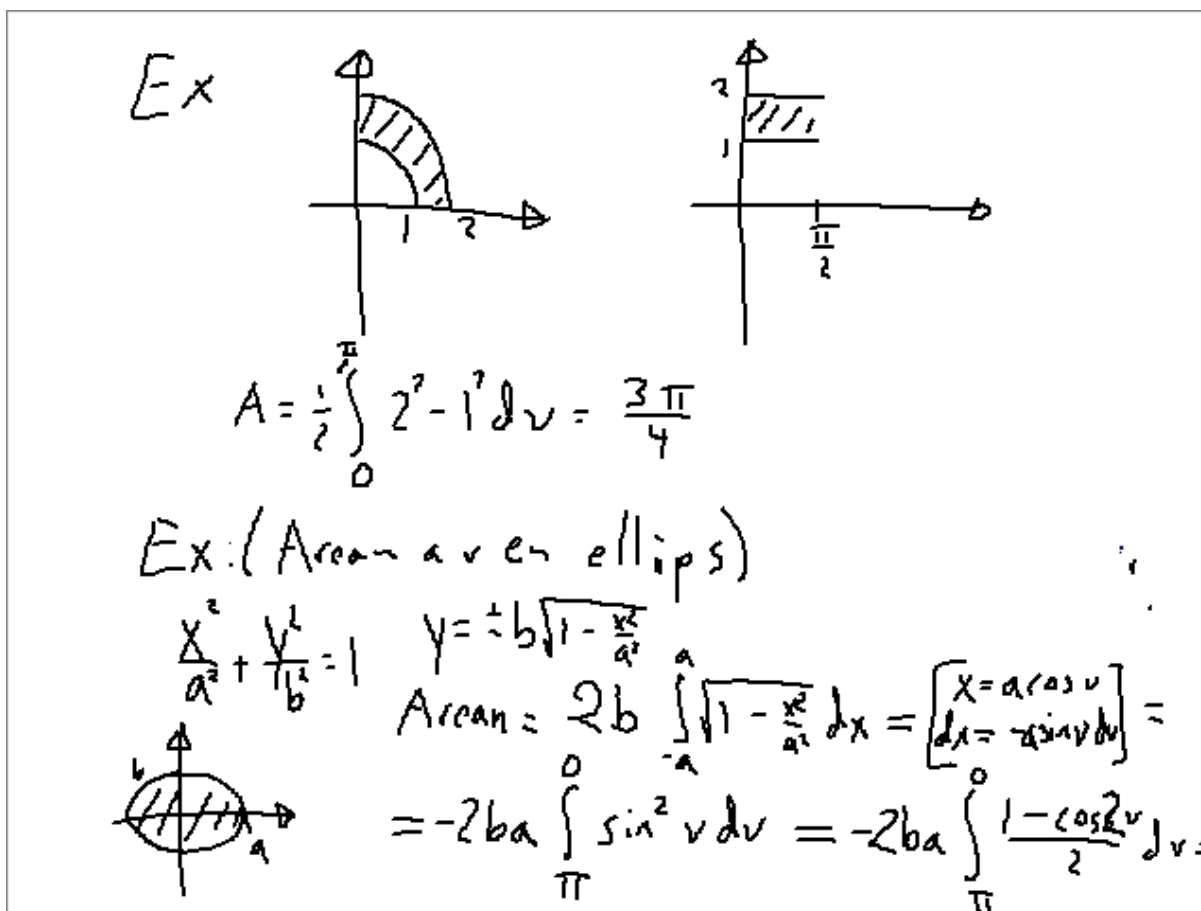 Ex
1 2
2
1
π/2
A = 1/2 ∫₀^(π/2) 2² - 1² dv = 3π/4
Ex: (Arean av en ellips)
x²/a² + y²/b² = 1
y = ± b√(1 - x²/a²)
Arean = 2b ∫₋ₐ^a √(1 - x²/a²) dx = [x = a cos v
dx = -a sin v dv] =
b
a
= -2ba ∫_π^0 sin² v dv = -2ba ∫_π^0 (1 - cos 2v)/2 dv =